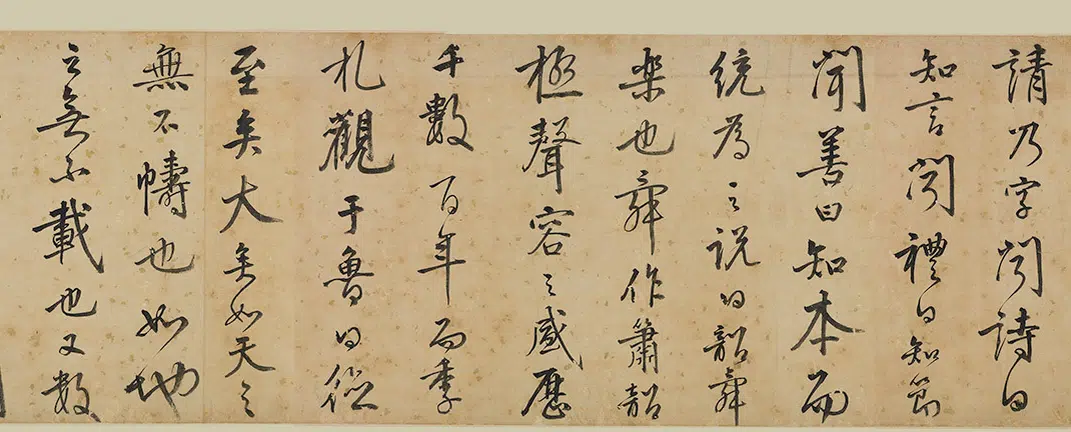 請乃字聞詩曰
知言聞禮曰知節
聞善曰知本而
統為之説曰韶舜
樂也舜作簫韶
極聲容之盛歷
千數百年而季
札觀于魯曰德
至矣大矣如天之
無不幬也如地
之無不載也又數